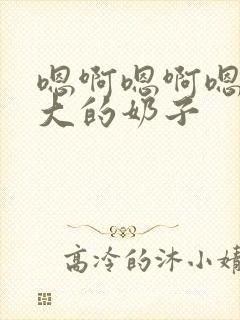 嗯啊嗯啊嗯
大的奶子
高冷的沐小婧